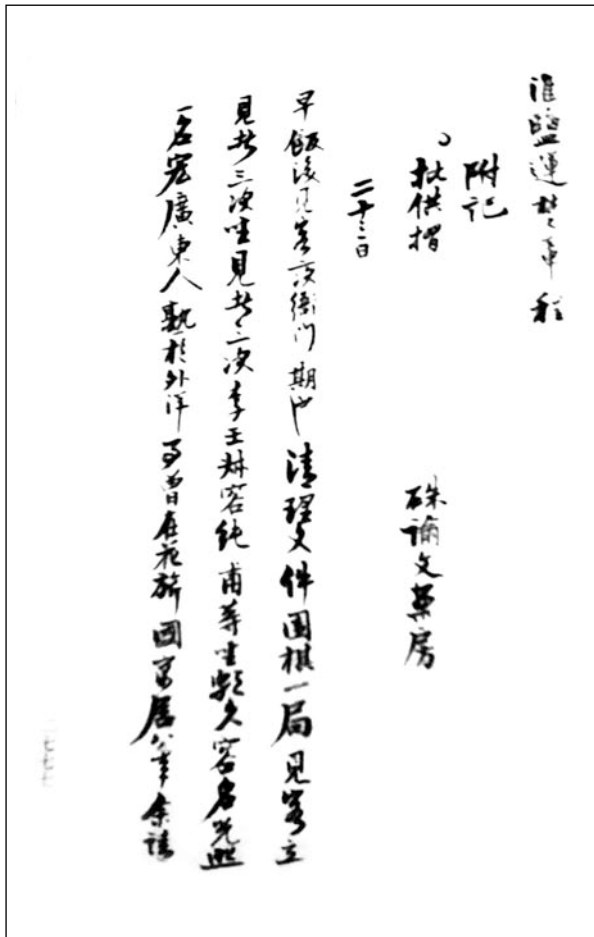 淮鹽運楚章程
附記
批供摺 硃諭文藁房
二十三日
早飯後見客二次衙門期也清理文件圍棋一局見客立
見者三次坐見者二次李壬叔容純甫等坐頗久容名光照
一名宏廣東人熟於外洋事曾在花旗國寓居八年余請
二七七七